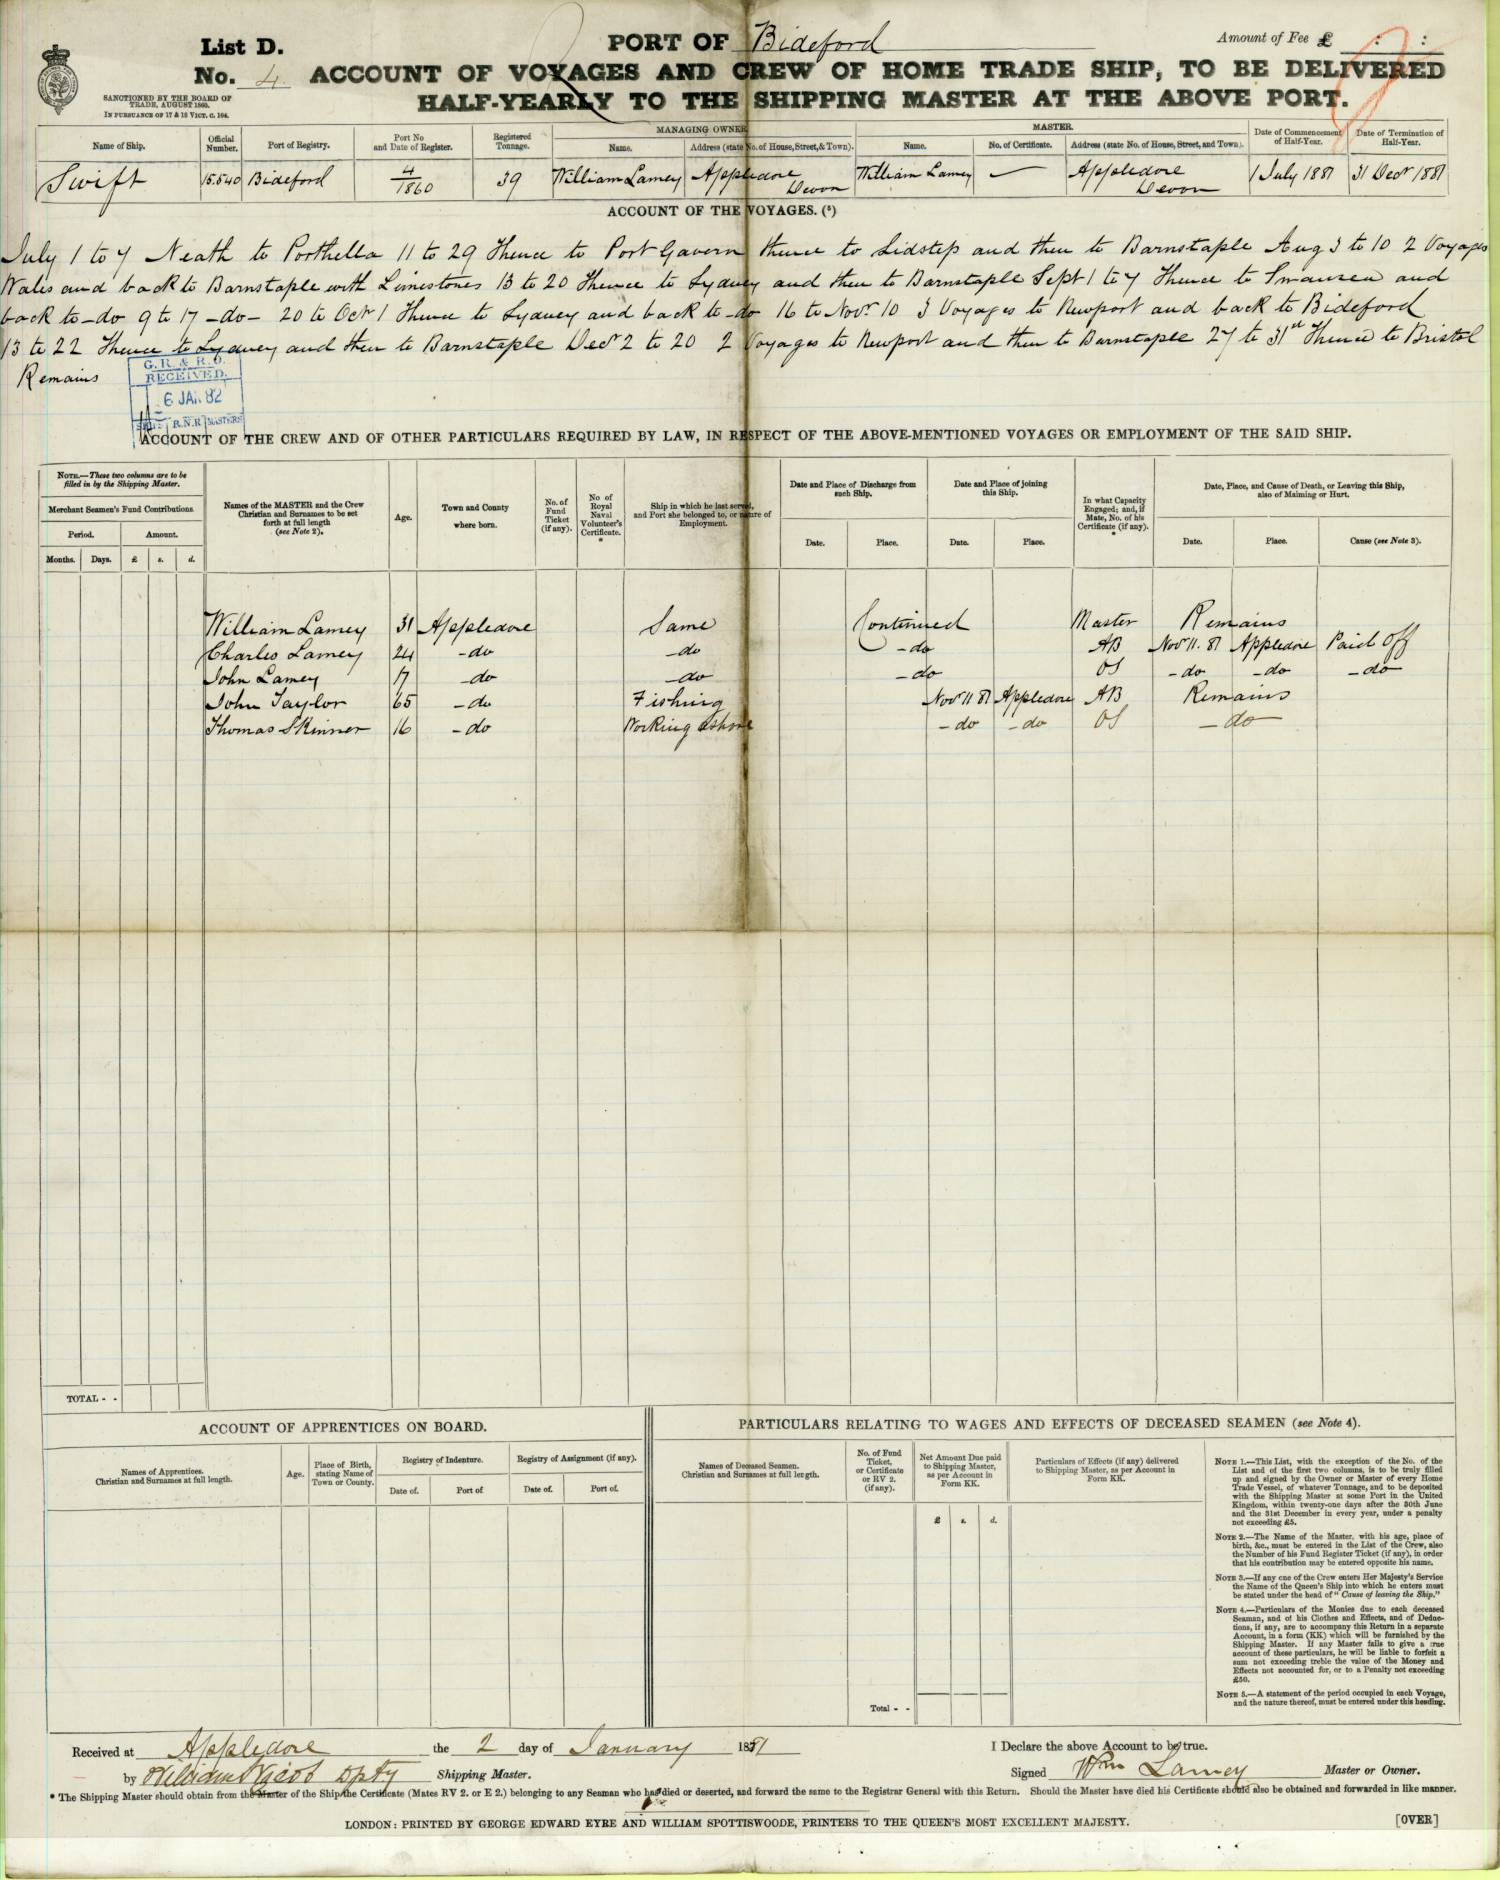 List D.
PORT OF Bideford
Amount of Fee £ : :
No. 4 ACCOUNT OF VOYAGES AND CREW OF HOME TRADE SHIP, TO BE DELIVERED
HALF-YEARLY TO THE SHIPPING MASTER AT THE ABOVE PORT.
SANCTIONED BY THE BOARD OF
TRADE, AUGUST 1860.
IN PURSUANCE OF 17 & 18 VICT. C. 104.
Name of Ship. Official Number. Port of Registry. Port No and Date of Register. Registered Tonnage. MANAGING OWNER. Name. Address (state No. of House, Street, & Town). MASTER. Name. No. of Certificate. Address (state No. of House, Street, and Town). Date of Commencement of Half-Year. Date of Termination of Half-Year.
Swift 15.540 Bideford 4/1860 39 William Lamey Appledore Devon William Lamey — Appledore Devon 1 July 1881 31 Decr 1881
ACCOUNT OF THE VOYAGES. (5)
July 1 to 7 Neath to Porthella 11 to 29 Thence to Port Gavern thence to Lidstep and then to Barnstaple Aug 3 to 10 2 Voyages
Wales and back to Barnstaple with Limestones 13 to 20 Thence to Lydney and then to Barnstaple Sept 1 to 7 Thence to Swansea and
back to -do 9 to 17 -do- 20 to Octr 1 Thence to Lydney and back to -do 16 to Novr 10 3 Voyages to Newport and back to Bideford
13 to 22 Thence to Lydney and then to Barnstaple Decr 2 to 20 2 Voyages to Newport and then to Barnstaple 27 to 31st Thence to Bristol
Remains
G. R. & R. O.
RECEIVED.
6 JAN. 82
R.N.R MASTERS
ACCOUNT OF THE CREW AND OF OTHER PARTICULARS REQUIRED BY LAW, IN RESPECT OF THE ABOVE-MENTIONED VOYAGES OR EMPLOYMENT OF THE SAID SHIP.
NOTE.—These two columns are to be filled in by the Shipping Master.
Merchant Seamen's Fund Contributions.
Period. Amount.
Months. Days. £ s. d.
Names of the MASTER and the Crew
Christian and Surnames to be set
forth at full length
(see Note 2).
Age.
Town and County
where born.
No. of Fund Ticket (if any).
No of Royal Naval Volunteer's Certificate. *
Ship in which he last served,
and Port she belonged to, or nature of
Employment.
Date and Place of Discharge from such Ship.
Date. Place.
Date and Place of joining this Ship.
Date. Place.
In what Capacity Engaged; and, if Mate, No. of his Certificate (if any). *
Date, Place, and Cause of Death, or Leaving this Ship, also of Maiming or Hurt.
Date. Place. Cause (see Note 3).
William Lamey 31 Appledore Same Continued Master Remains
Charles Lamey 24 -do -do -do AB Novr 11. 81 Appledore Paid Off
John Lamey 17 -do -do -do OS -do -do -do
John Taylor 65 -do Fishing Novr 11 81 Appledore AB Remains
Thomas Skinner 16 -do Working ashore -do -do OS -do
TOTAL - -
ACCOUNT OF APPRENTICES ON BOARD.
Names of Apprentices.
Christian and Surnames at full length.
Age.
Place of Birth, stating Name of Town or County.
Registry of Indenture.
Date of. Port of.
Registry of Assignment (if any).
Date of. Port of.
PARTICULARS RELATING TO WAGES AND EFFECTS OF DECEASED SEAMEN (see Note 4).
Names of Deceased Seamen.
Christian and Surnames at full length.
No. of Fund Ticket, or Certificate or RV 2. (if any).
Net Amount Due paid to Shipping Master, as per Account in Form KK.
£ s. d.
Particulars of Effects (if any) delivered to Shipping Master, as per Account in Form KK.
Total - -
NOTE 1.—This List, with the exception of the No. of the
List and of the first two columns, is to be truly filled
up and signed by the Owner or Master of every Home
Trade Vessel, of whatever Tonnage, and to be deposited
with the Shipping Master at some Port in the United
Kingdom, within twenty-one days after the 30th June
and the 31st December in every year, under a penalty
not exceeding £5.
NOTE 2.—The Name of the Master, with his age, place of
birth, &c., must be entered in the List of the Crew, also
the Number of his Fund Register Ticket (if any), in order
that his contribution may be entered opposite his name.
NOTE 3.—If any one of the Crew enters Her Majesty's Service
the Name of the Queen's Ship into which he enters must
be stated under the head of "Cause of leaving the Ship."
NOTE 4.—Particulars of the Monies due to each deceased
Seaman, and of his Clothes and Effects, and of Deduc-
tions, if any, are to accompany this Return in a separate
Account, in a form (KK) which will be furnished by the
Shipping Master. If any Master fails to give a true
account of these particulars, he will be liable to forfeit a
sum not exceeding treble the value of the Money and
Effects not accounted for, or to a Penalty not exceeding
£50.
NOTE 5.—A statement of the period occupied in each Voyage,
and the nature thereof, must be entered under this heading.
Received at Appledore the 2 day of January 1881
I Declare the above Account to be true.
by William Jacob Dpty Shipping Master.
Signed Wm Lamey Master or Owner.
* The Shipping Master should obtain from the Master of the Ship the Certificate (Mates RV 2. or E 2.) belonging to any Seaman who has died or deserted, and forward the same to the Registrar General with this Return. Should the Master have died his Certificate should also be obtained and forwarded in like manner.
LONDON: PRINTED BY GEORGE EDWARD EYRE AND WILLIAM SPOTTISWOODE, PRINTERS TO THE QUEEN'S MOST EXCELLENT MAJESTY.
[OVER]